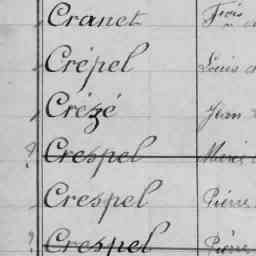 Cranet Frois
Crépel Louis
Crézé Jean
? Crespel Marie
Crespel Pierre
? Crespel Pierre